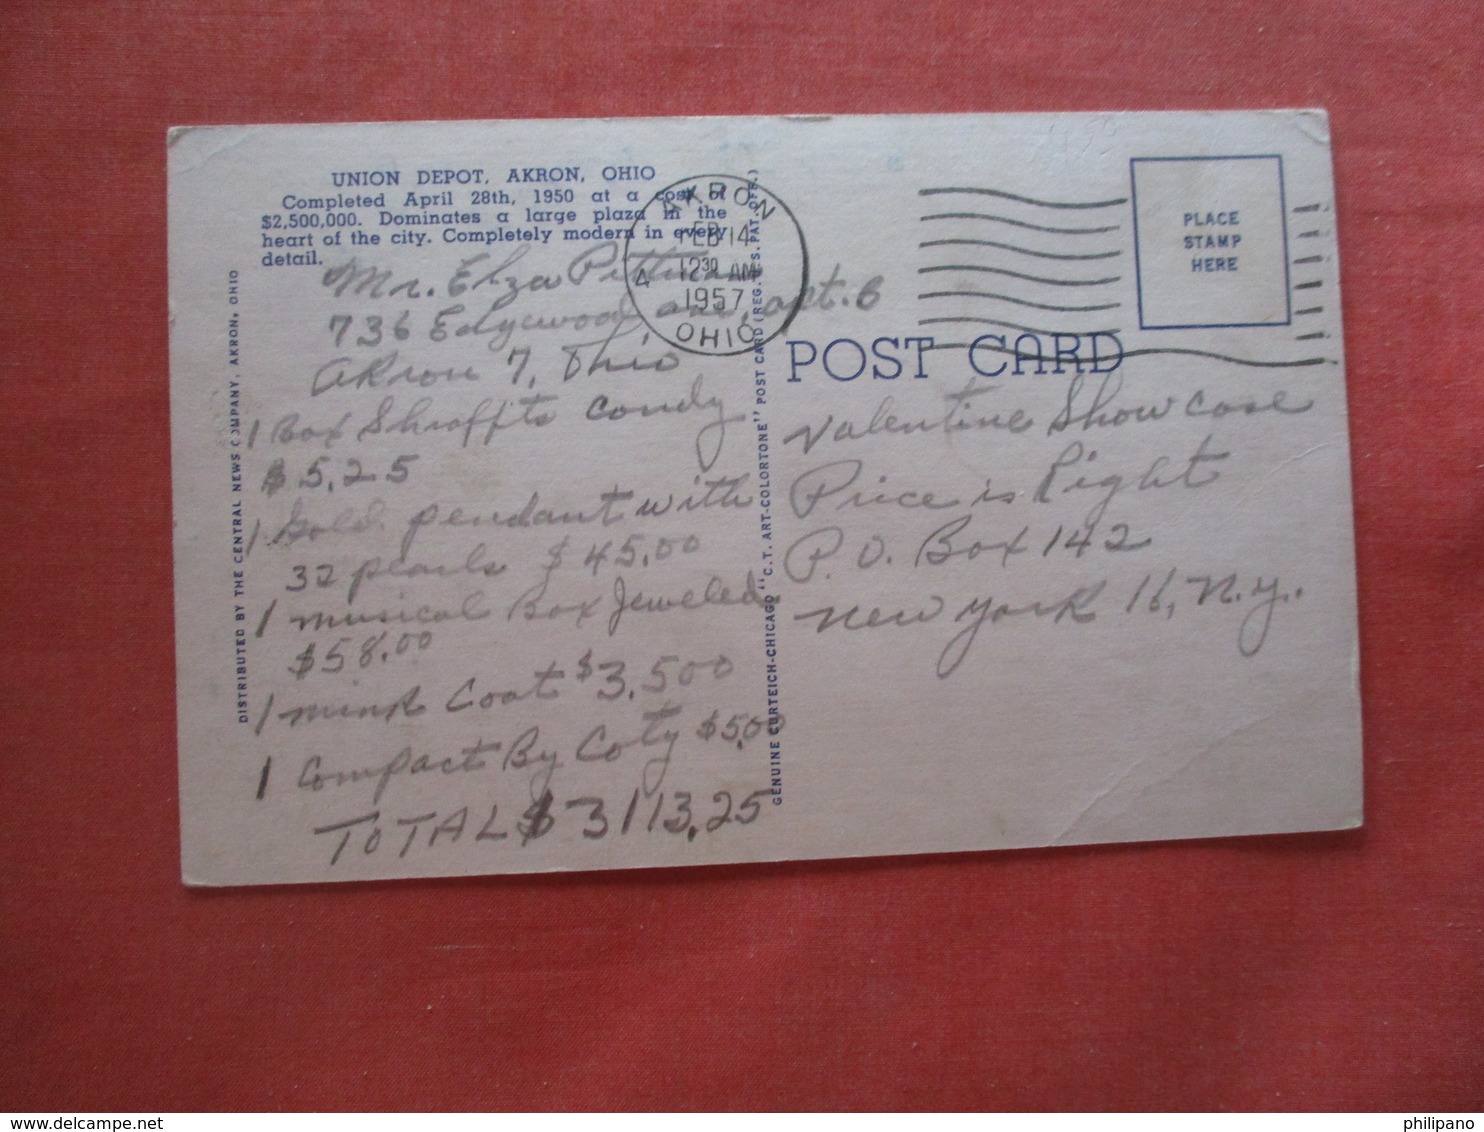 UNION DEPOT, AKRON, OHIO
Completed April 28th, 1950 at a cost of
$2,500,000. Dominates a large plaza in the
heart of the city. Completely modern in every
detail.
AKRON
FEB 14
12 30 AM
1957
OHIO
4
PLACE
STAMP
HERE
POST CARD
Mr. Elza
736 Edgewood ave, apt. 6
Akron 7, Ohio
1 Box Shraffts Candy
$5.25
1 Gold pendant with
32 pearls $45.00
1 musical Box Jeweled
$58.00
1 mink Coat $3,500
1 Compact By Coty $5.00
TOTAL $3113.25
Valentine Show case
Price is Right
P.O. Box 142
New York 16, N.Y.
DISTRIBUTED BY THE CENTRAL NEWS COMPANY, AKRON, OHIO
GENUINE CURTEICH-CHICAGO "C.T. ART-COLORTONE" POST CARD (REG. U.S. PAT. OFF.)
philipano